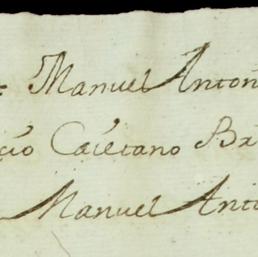 Manuel Anton
cio Caietano Br
Manuel Anto